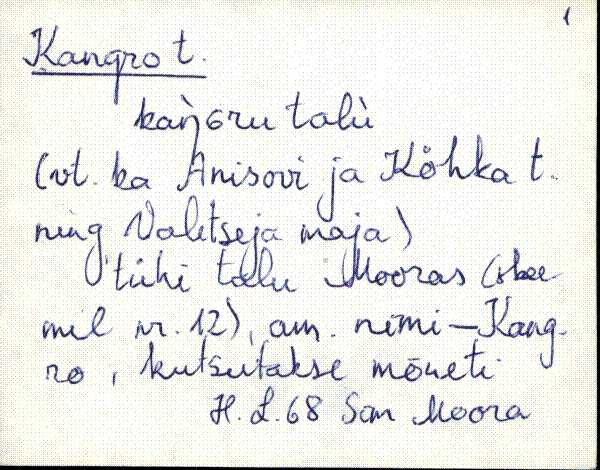 1
Kangro t.
kaǹɢru talù
(vt. ka Anisovi ja Kõhka t.
ning Valitseja maja)
tühi talu Mooras (skee-
mil nr. 12), am. nimi – Kang-
ro, kutsutakse mõneti
H. L. 68 San Moora